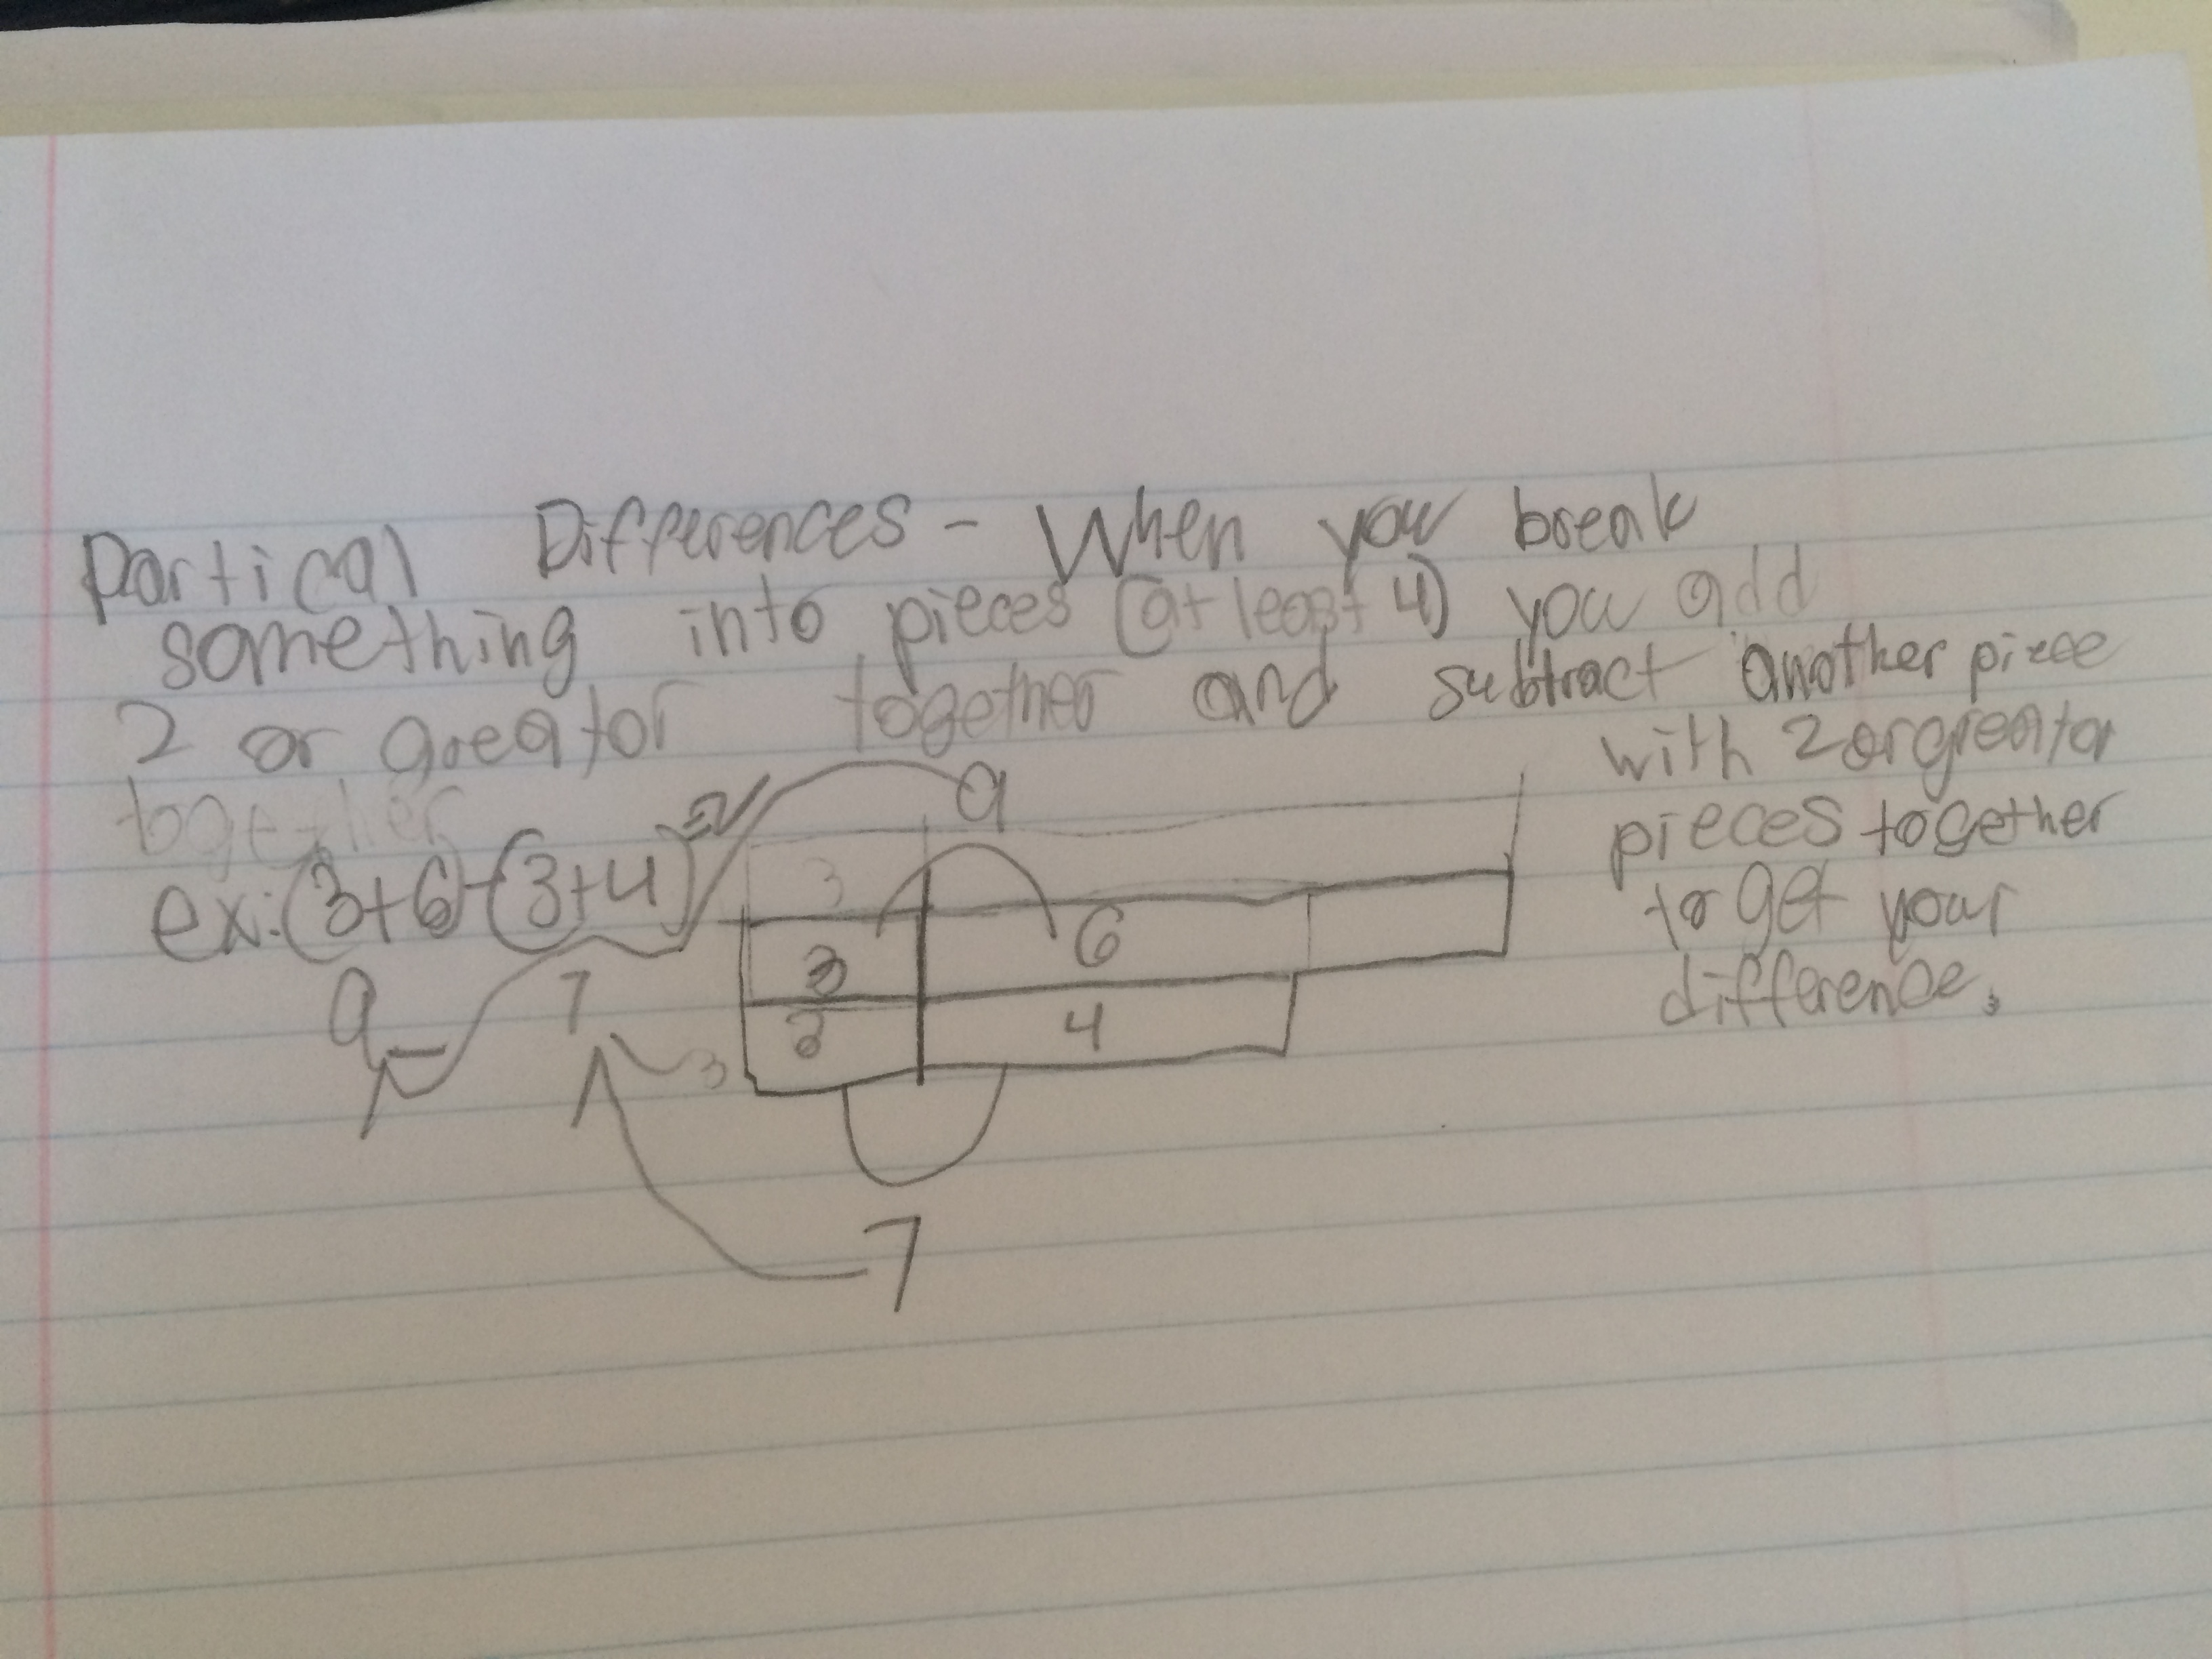 Partical Differences - When you break
something into pieces (at least 4) you add
2 or greator together and subtract another piece
with 2 or greator
pieces together
to get your
difference.
together
ex: (3+6)-(3+4)=2
9 - 7
9
3
3 6
3 4
3
7